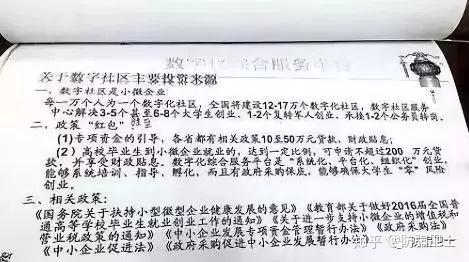 关于数字社区主要
一、数字社区是小微企业
每一万个人为一个数字化社区，全国将建设12-17万个数字化社区，数字社区服务
中心解决3-5个甚至6-8个大学生创业、1-2个复转军人创业、承接1-2个公务员转岗。
二、政策“红包”
(1)专项资金的引导，各省都有相关政策10至50万元贷款，财政贴息；
(2)高校毕业生到小微企业就业的，达到一定比例，可申请不超过200万元贷
款，并享受财政贴息。数字化综合服务平台是“系统化、平台化、组织化”创业，
能够系统培训、指导、孵化，而且有政府采购保底，能够确保大学生“零”风险
创业。
三、相关政策：
《国务院关于扶持小型微型企业健康发展的意见》《教育部关于做好2016届全国普
通高等学校毕业生就业创业工作的通知》《关于进一步支持小微企业的增值税和
营业税政策的通知》《中小企业发展专项资金管理暂行办法》《政府采购法》
《中小企业促进法》《政府采购促进中小企业发展暂行办法》
知乎